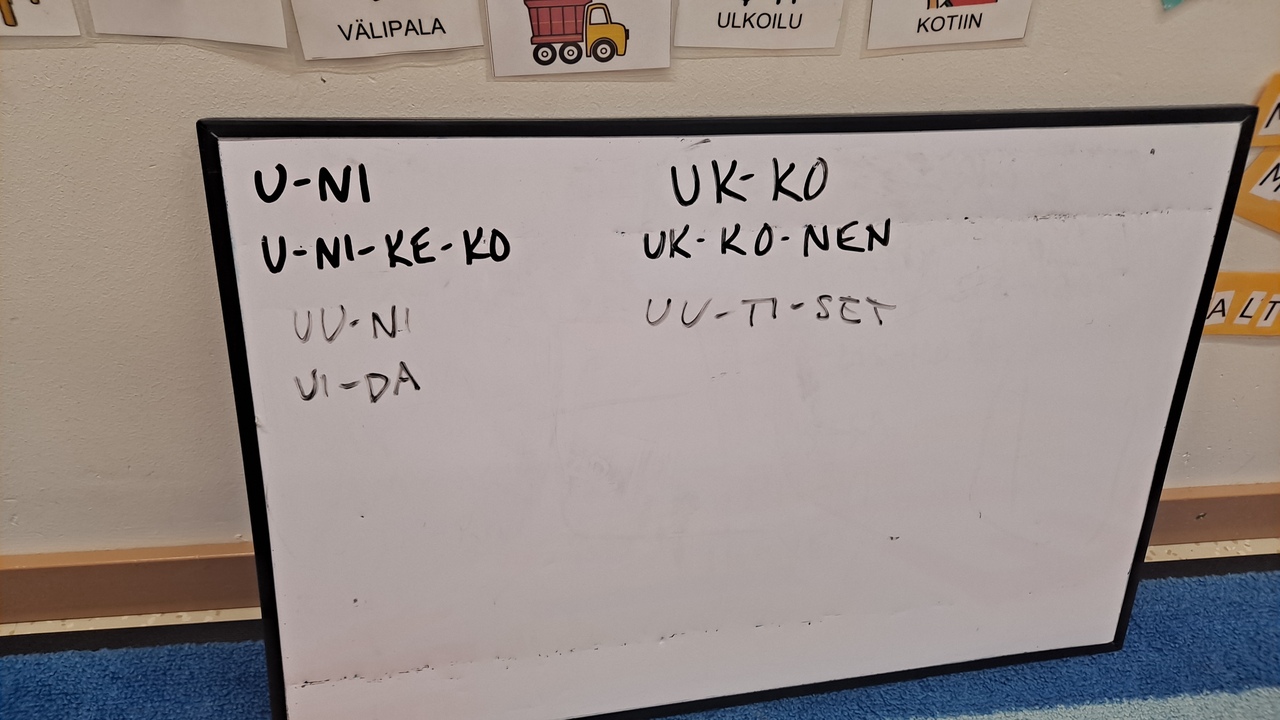 VÄLIPALA
ULKOILU
KOTIIN
U-NI
UK-KO
U-NI-KE-KO
UK-KO-NEN
UU-NI
UU-TI-SET
UI-DA
M
M
ALT